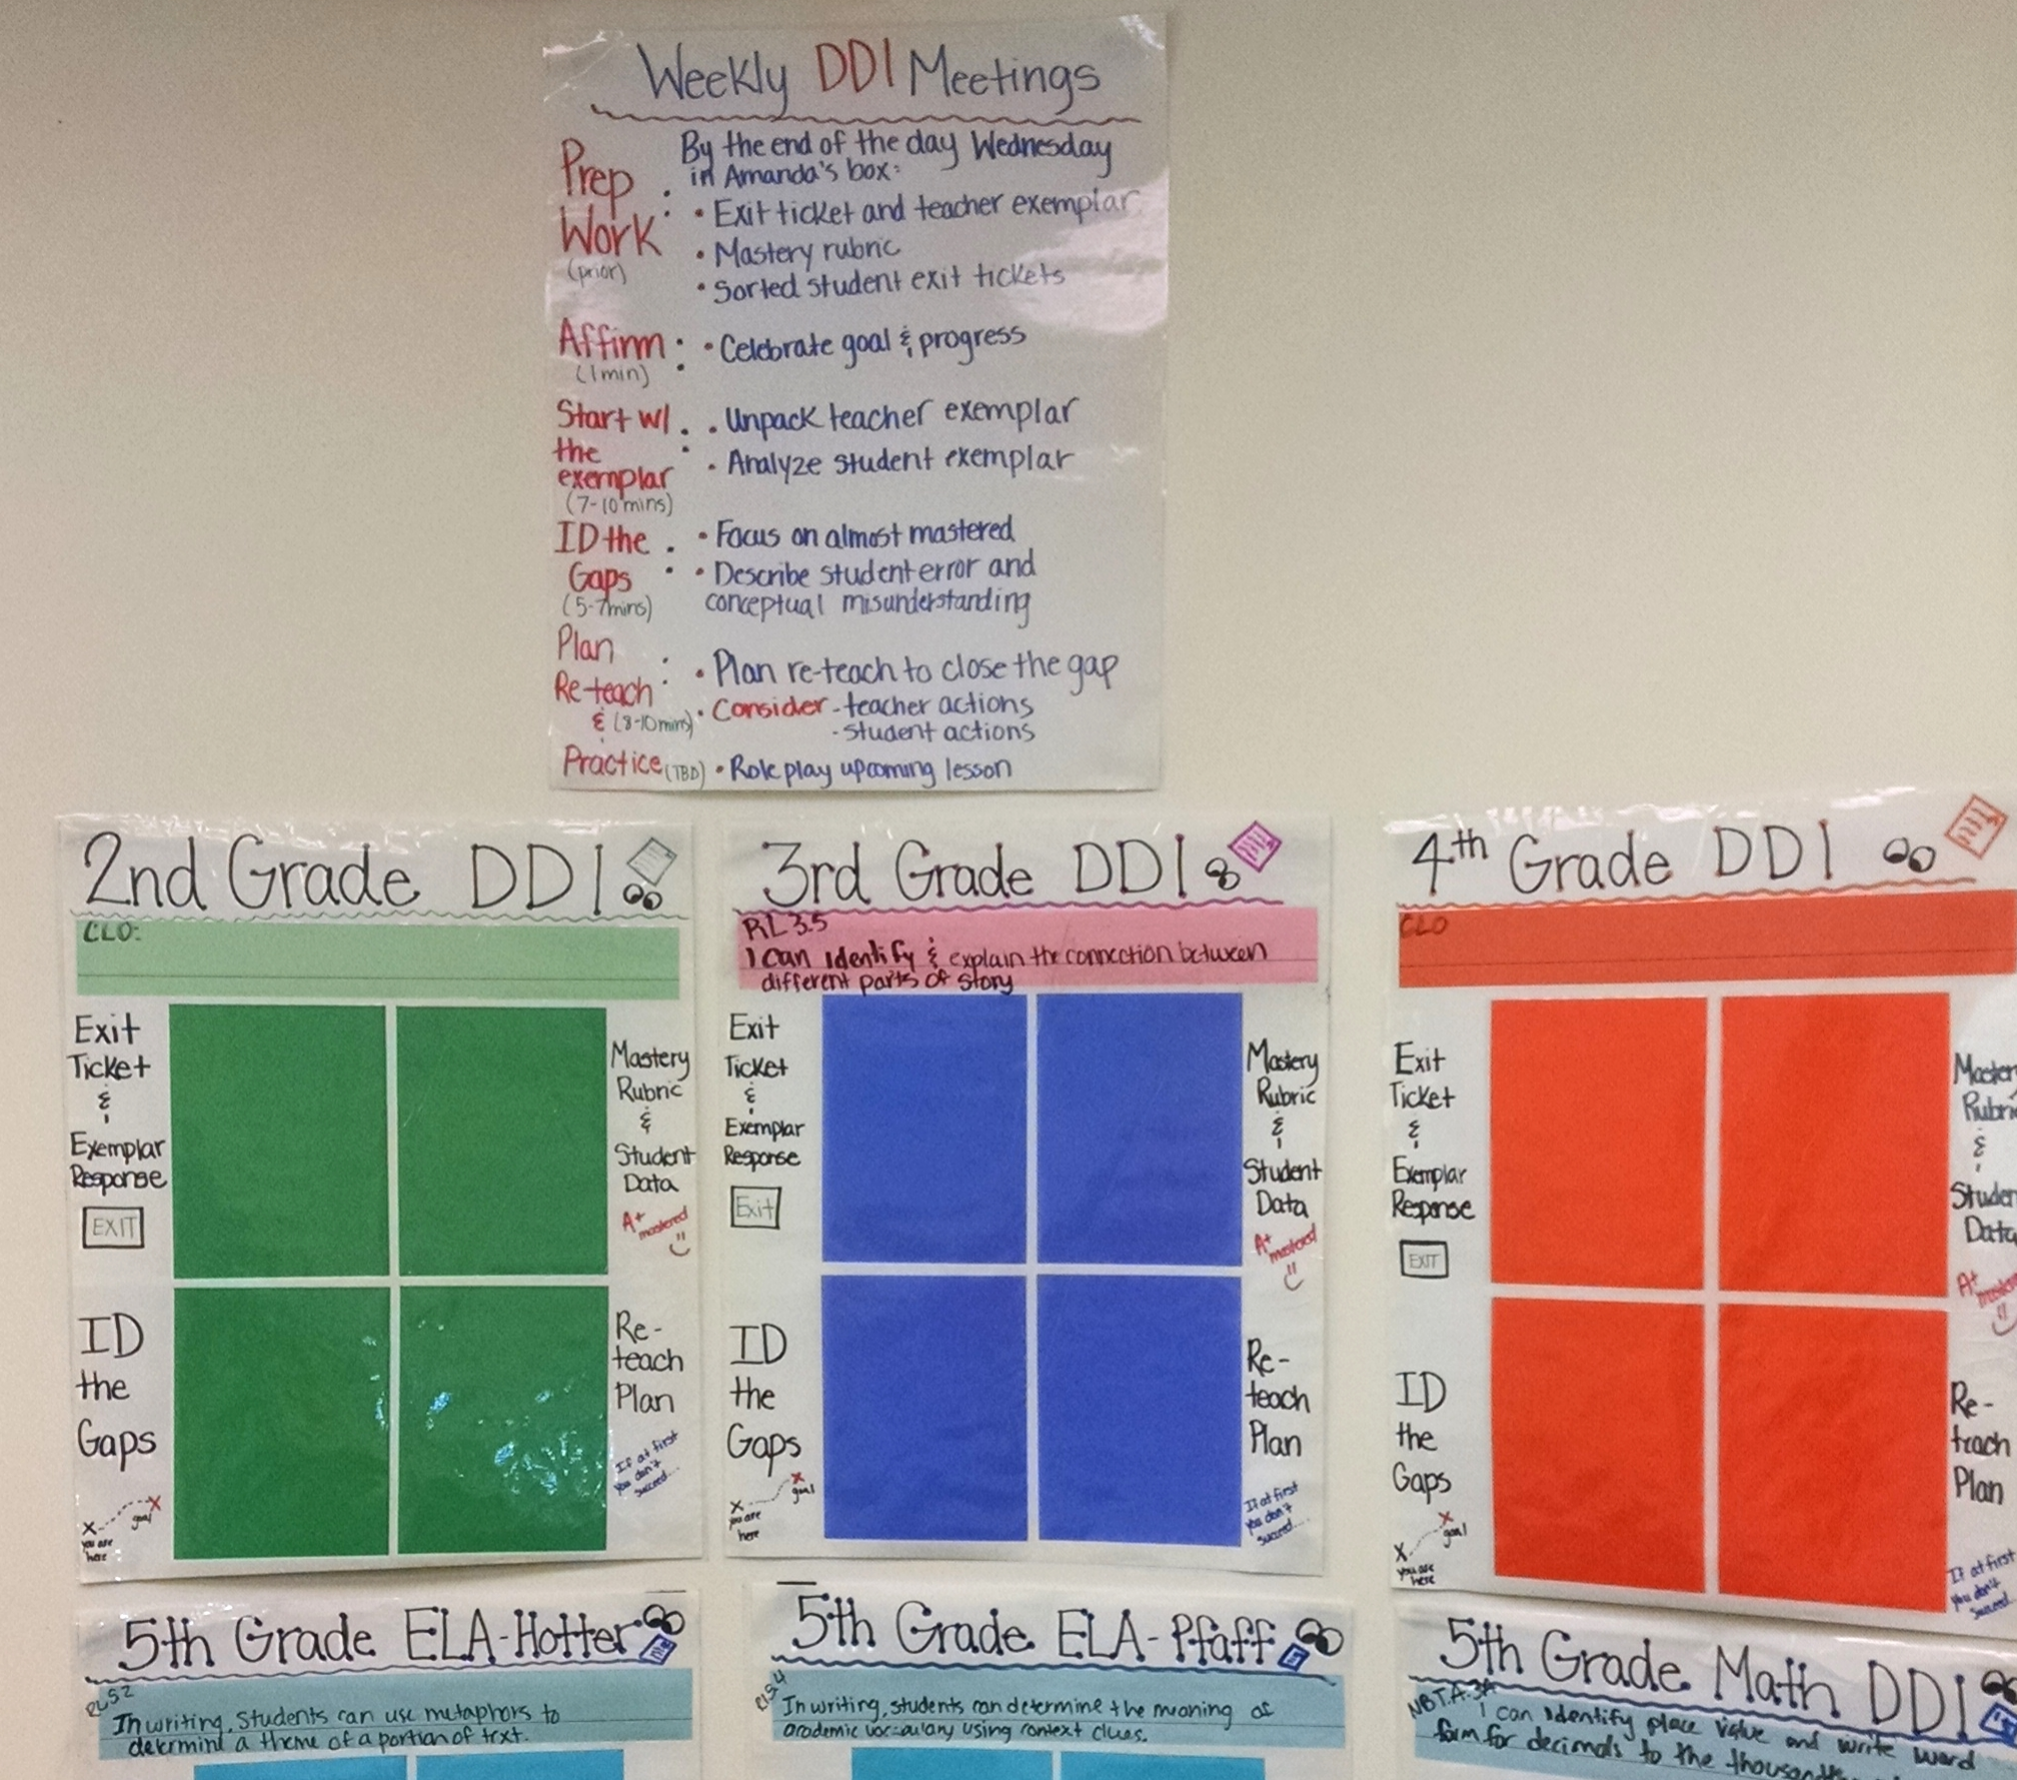 Weekly DDI Meetings
Prep Work : (prior)
By the end of the day Wednesday
in Amanda's box:
• Exit ticket and teacher exemplar
• Mastery rubric
• Sorted student exit tickets
Affirm : (1min)
• Celebrate goal & progress
Start w/
the
exemplar :
(7-10 mins)
• Unpack teacher exemplar
• Analyze student exemplar
ID the
Gaps :
(5-7mins)
• Focus on almost mastered
• Describe student error and
conceptual misunderstanding
Plan
Re-teach :
& (8-10 mins)
• Plan re-teach to close the gap
• Consider - teacher actions
- student actions
Practice (TBD) • Role play upcoming lesson
2nd Grade DDI
CLO:
Exit
Ticket
&
Exemplar
Response
EXIT
Mastery
Rubric
&
Student
Data
A+ mastered
ID
the
Gaps
X you are here
X goal
Re-
teach
Plan
If at first
you don't
succeed...
3rd Grade DDI
RL 3.5
I can identify & explain the connection between
different parts of story
Exit
Ticket
&
Exemplar
Response
Exit
Mastery
Rubric
&
Student
Data
A+ mastered
ID
the
Gaps
X you are here
X goal
Re-
teach
Plan
If at first
you don't
succeed...
4th Grade DDI
CLO
Exit
Ticket
&
Exemplar
Response
EXIT
Master
Rubri
&
Studen
Data
A+ mastere
ID
the
Gaps
X you are here
X goal
Re-
teach
Plan
If at first
you don't
succeed...
5th Grade ELA-Hotter
RL 5.2
In writing, students can use metaphors to
determine a theme of a portion of text.
5th Grade ELA-Pfaff
In writing, students can determine the meaning of
academic vocabulary using context clues.
5th Grade Math DDI
I can identify place value and write word
form for decimals to the